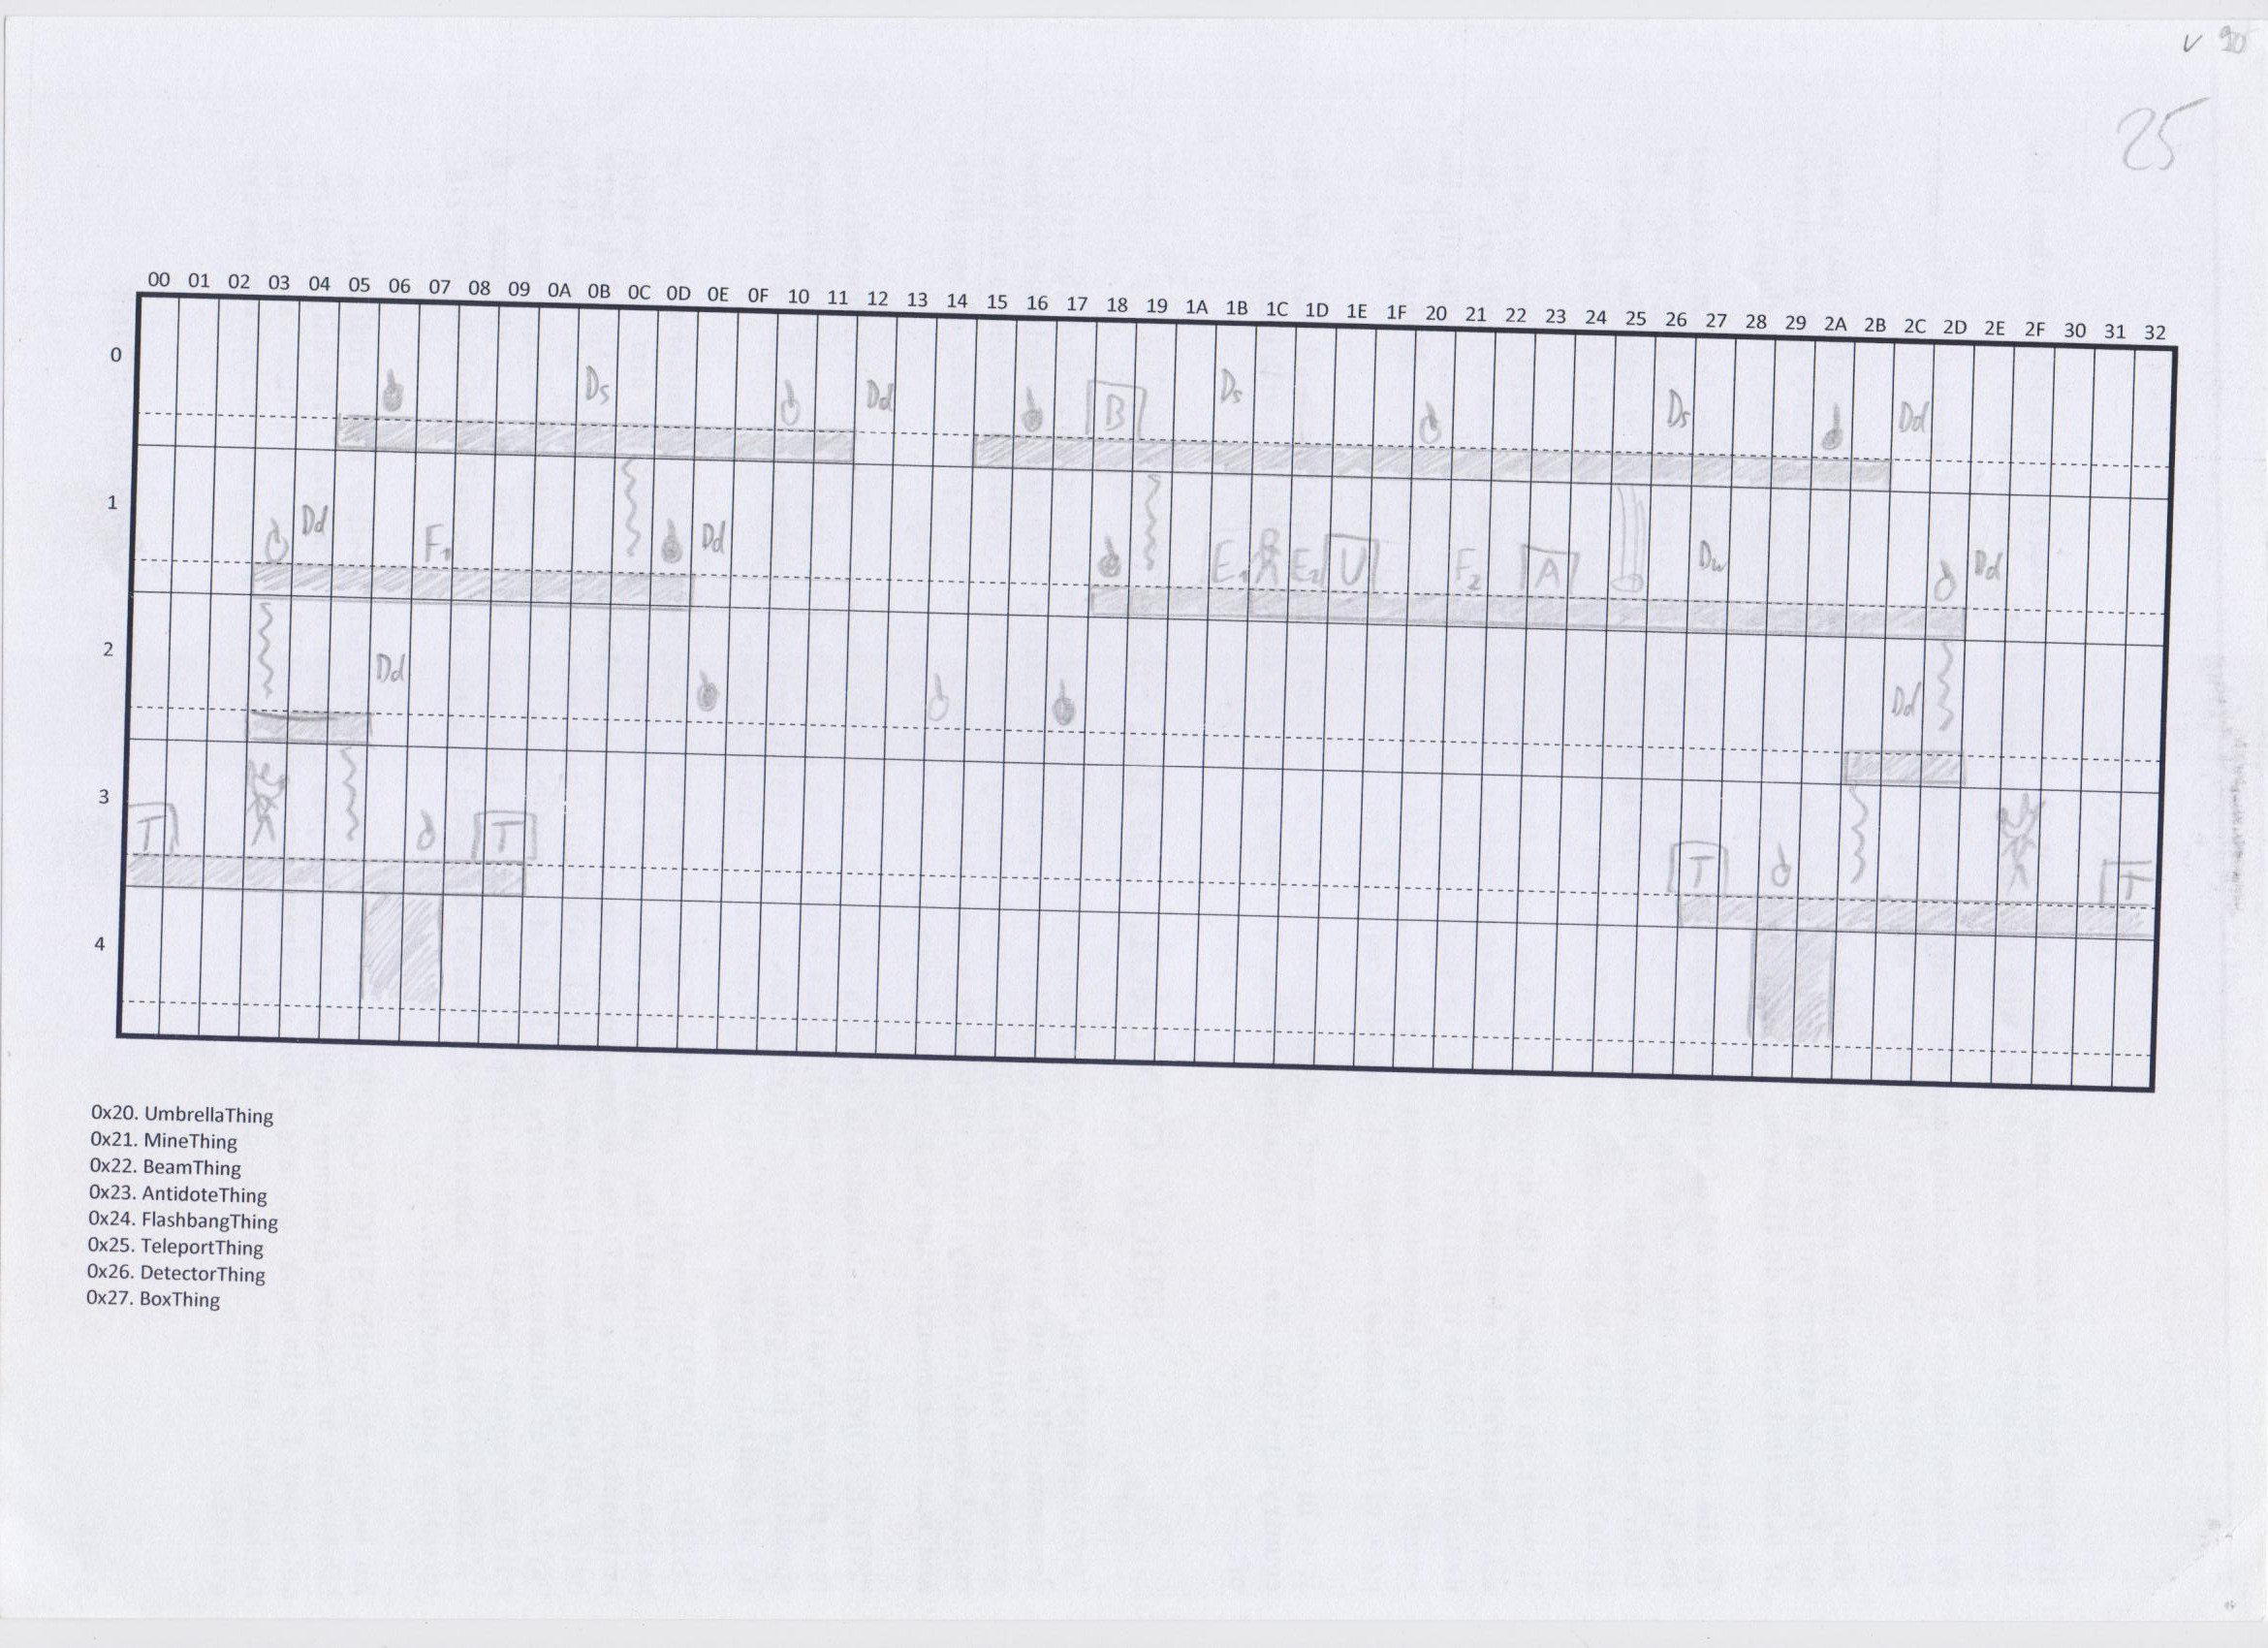 v 90
25
00 01 02 03 04 05 06 07 08 09 0A 0B 0C 0D 0E 0F 10 11 12 13 14 15 16 17 18 19 1A 1B 1C 1D 1E 1F 20 21 22 23 24 25 26 27 28 29 2A 2B 2C 2D 2E 2F 30 31 32
0
Ds Dd B Ds Ds Dd
1
Dd F1 Dd E1 E2 U F2 A Dw Dd
2
Dd Dd
3
T T T T
4
0x20. UmbrellaThing
0x21. MineThing
0x22. BeamThing
0x23. AntidoteThing
0x24. FlashbangThing
0x25. TeleportThing
0x26. DetectorThing
0x27. BoxThing